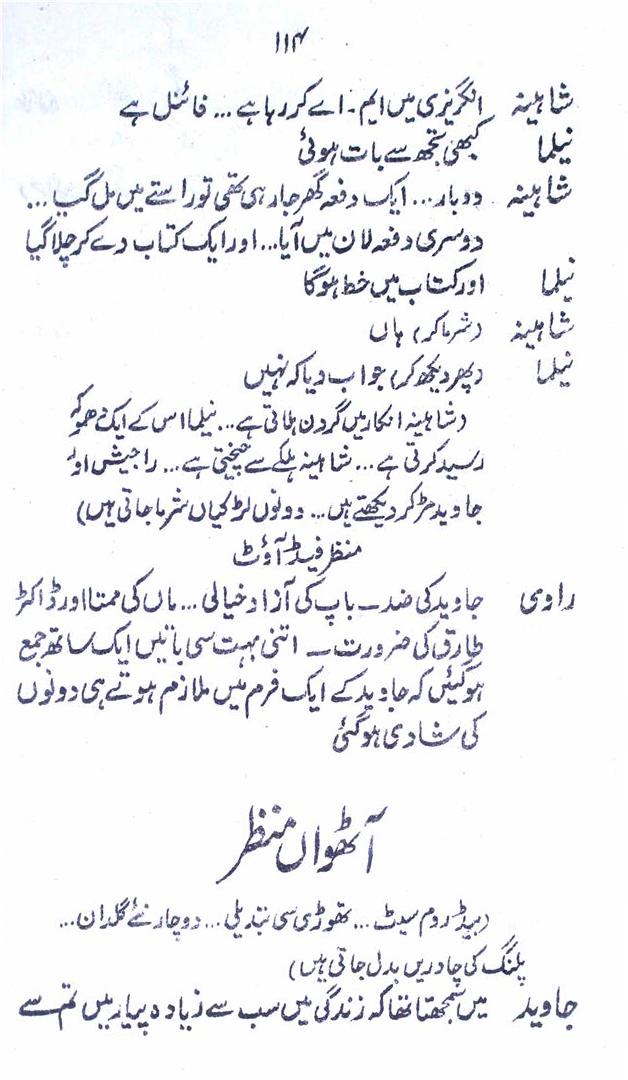 ۱۱۴
شاہینہ انگریزی میں ایم۔اے کر رہا ہے ... فائنل ہے
نیلما کبھی تجھ سے بات ہوئی
شاہینہ دوبار... ایک دفعہ گھر جا رہی تھی تو راستے میں مل گیا ...
دوسری دفعہ لان میں آیا... اور ایک کتاب دے کر چلا گیا
نیلما اور کتاب میں خط ہوگا
شاہینہ (شرما کر) ہاں
نیلما (پھر دیکھ کر) جواب دیا کہ نہیں
(شاہینہ انکار میں گردن ہلاتی ہے... نیلما اس کے ایک
رسید کرتی ہے... شاہینہ ہلکے سے چیختی ہے... راجیش اور
جاوید مڑ کر دیکھتے ہیں... دونوں لڑکیاں شرما جاتی ہیں)
منظر فیڈ آؤٹ
راوی جاوید کی ضد ــ باپ کی آزاد خیالی ... ماں کی ممتا اور ڈاکٹر
طارق کی ضرورت ــ اتنی بہت سی باتیں ایک ساتھ جمع
ہو گئیں کہ جاوید کے ایک فرم میں ملازم ہوتے ہی دونوں
کی شادی ہو گئی
آٹھواں منظر
(بیڈ روم سیٹ ... تھوڑی سی تبدیلی ... دو چار نئے گلدان ...
پلنگ کی چادریں بدل جاتی ہیں)
جاوید میں سمجھتا تھا کہ زندگی میں سب سے زیادہ پیار میں تم سے